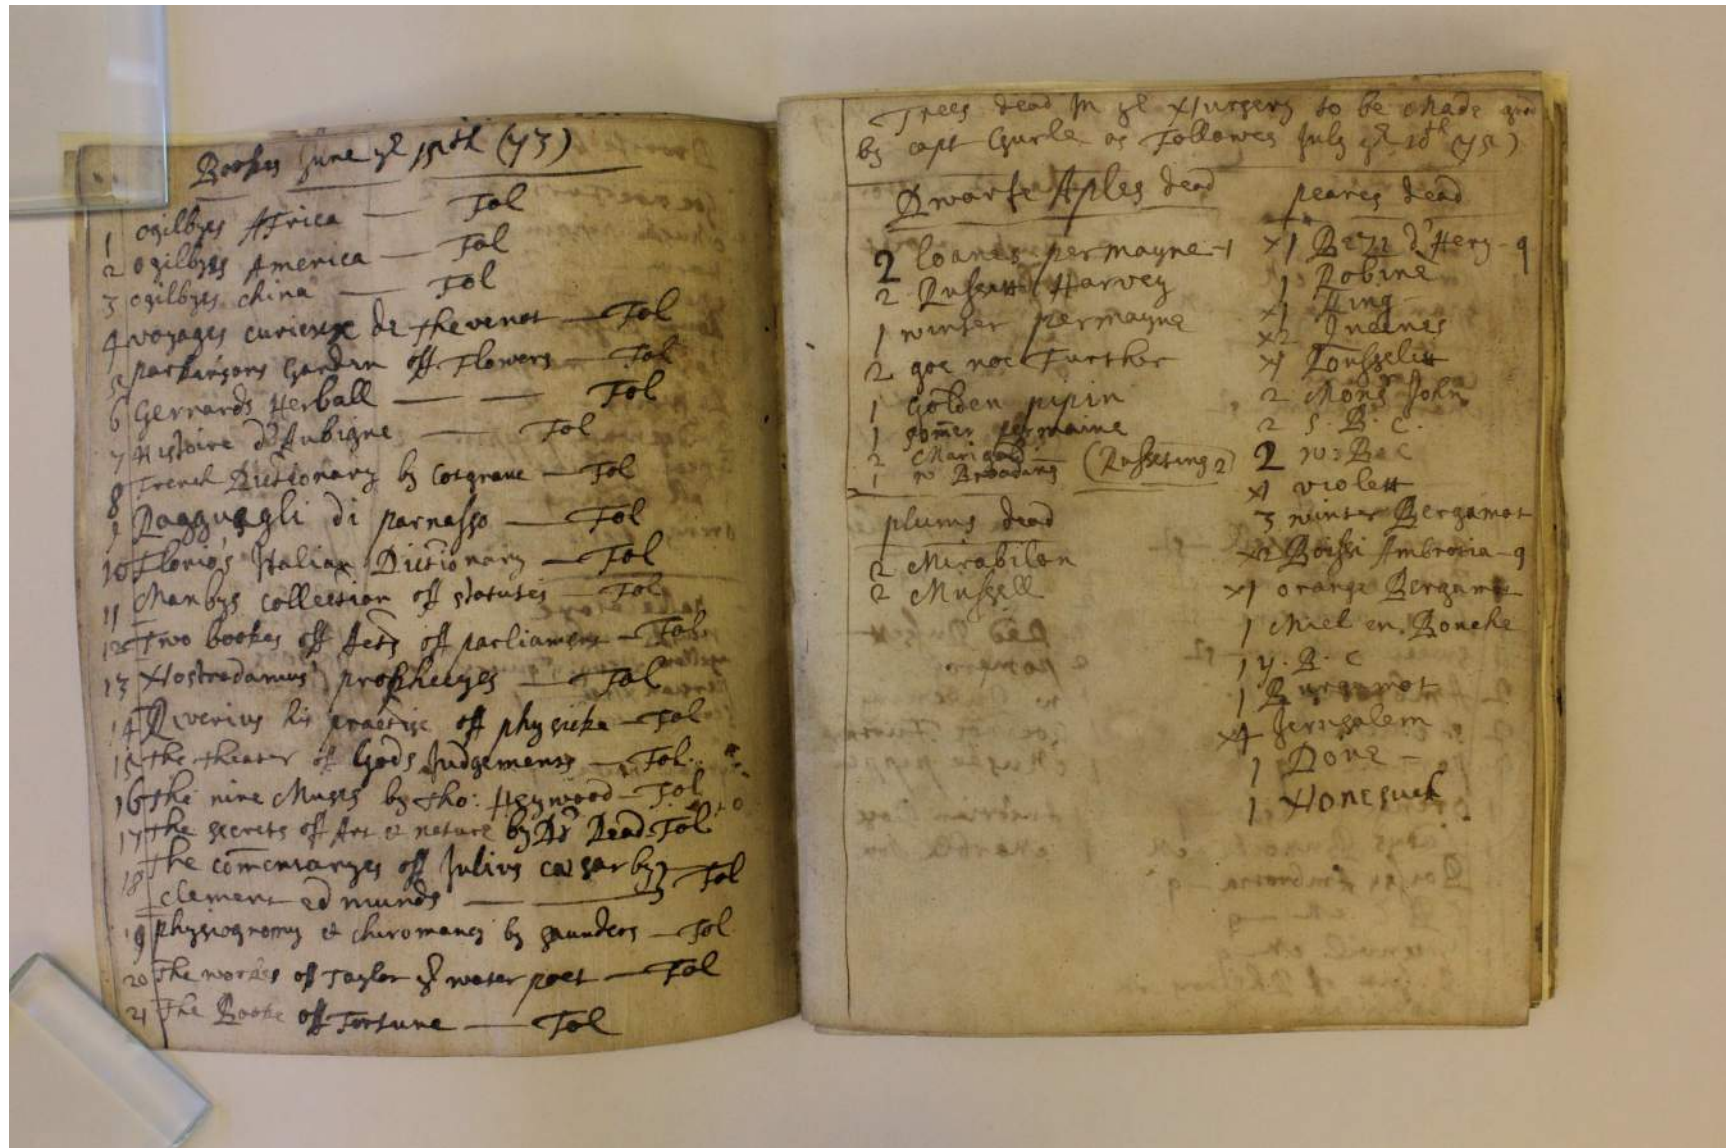 Bookes June ye 15th (73)
1 ogilbyes Africa — Fol
2 ogilbyes America — Fol
3 ogilbyes china — Fol
4 voyages curieuse de thevenot — Fol
5 parkinsons Garden off Flowers — Fol
6 Gerrards Herball — — Fol
7 Histoire d'Aubigne — Fol
8 French Dictionary by Cotgrave — Fol
9 Ragguagli di parnasso — Fol
10 Florio's Italian Dictionary — Fol
11 Manbys collection off statutes — Fol
12 Two bookes off Acts off parliament — Fol
13 Nostradamus prophecyes — Fol
14 Riverius his practise off physicke — Fol
15 the theater of Gods Judgements — Fol
16 the nine Muses by Tho: Heywood — Fol
17 the secrets off Art & nature by Dr Read Fol
18 the com̄entaryes off Julius caesar by
clement edmunds — Fol
19 physiognomy & chiromancy by saunders — Fol
20 The workes off Taylor ye water poet — Fol
21 The Booke off Fortune — Fol
Trees dead In ye Nursery to be Made
by capt Gurle as Followes July ye (75)
Dwarfe Aples dead
2 loanes permayne - 1
2 Russett Harvey
1 winter permayne
2 goe noe Further
1 Golden pipin
1 som̄er permaine
2 Marigold
1 w Broading (Russeting 2)
plums dead
2 Mirabilon
2 Mussell
peares dead
x1 Bezi d'Hery - q
1 Robine
x1 King -
x2
x1 Rousselett
2 Mons John
2 S. B. C.
2 w: B. C
x1 violett
3 winter Bergamot
x2 Boissi Ambrosia - q
x1 orange Bergamot
1 Miel en Bouche
1 y. B. C
1 Burgamot
x1 Jerusalem
1 Dove -
1 Honesuck